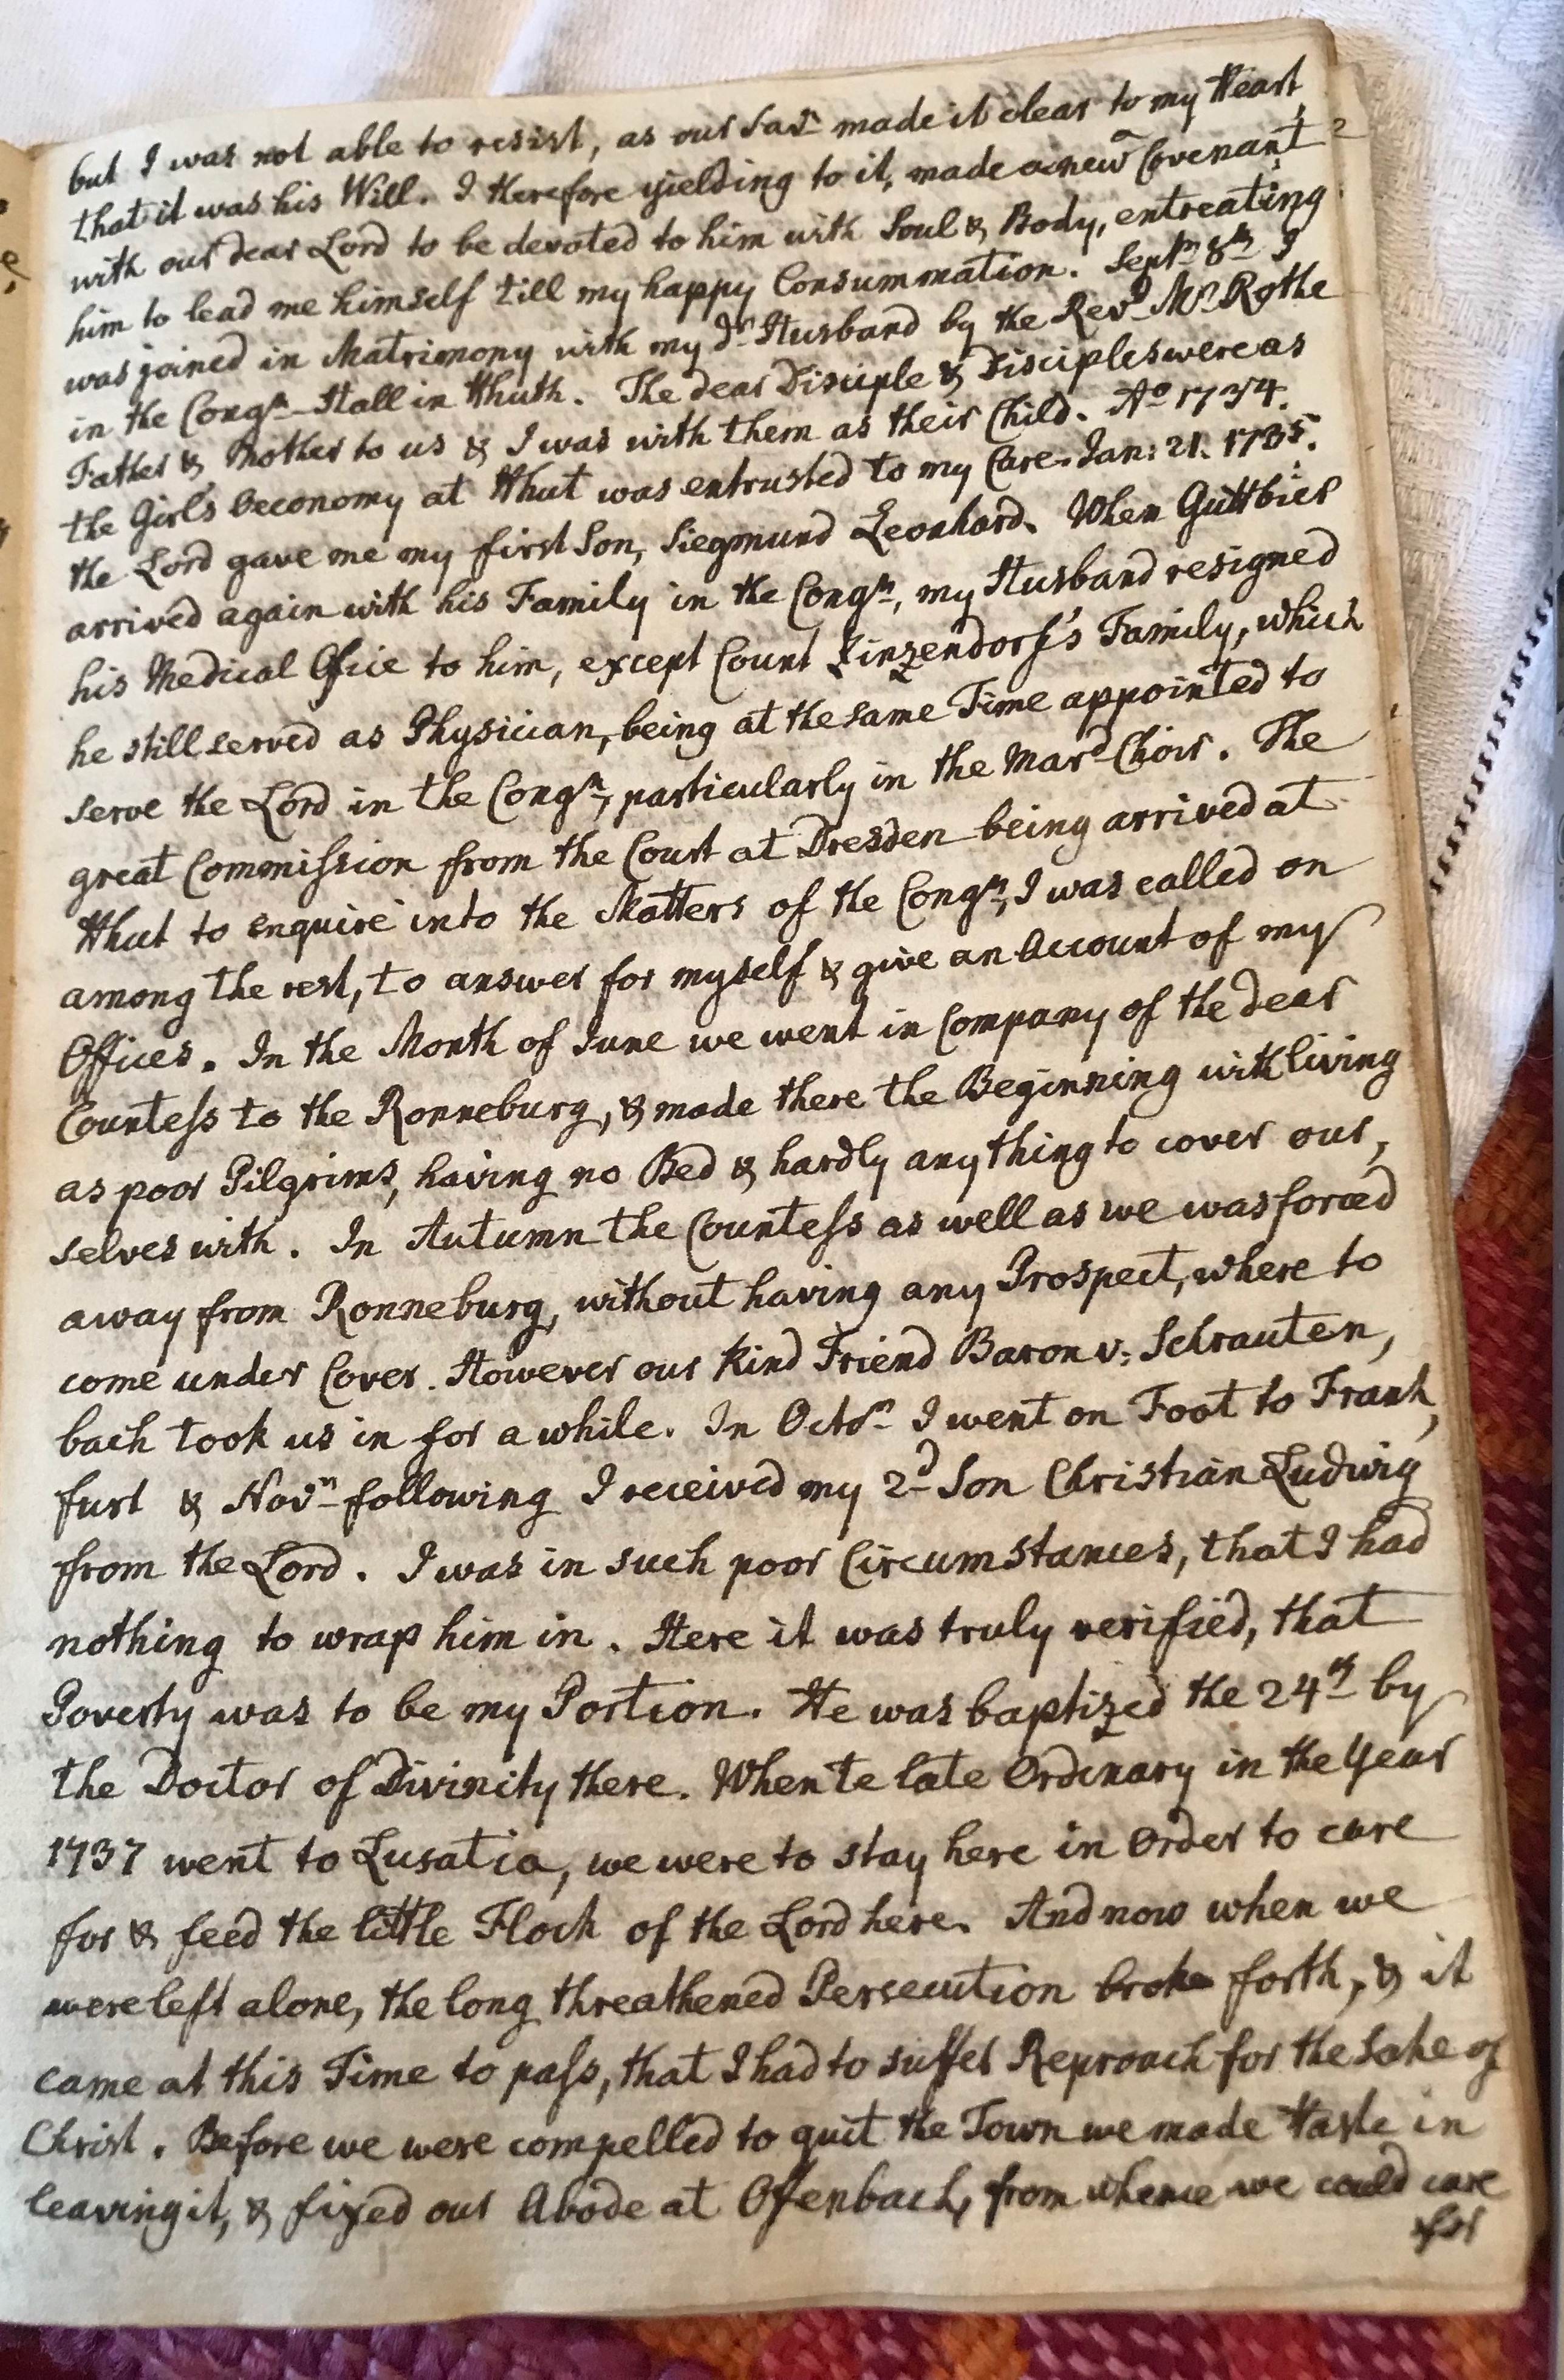 but I was not able to resist, as our Savr made it clear to my Heart,
that it was his Will. I therefore yielding to it, made a new Covenant
with our dear Lord to be devoted to him with Soul & Body, entreating
him to lead me himself till my happy Consummation. Septr 8th I
was joined in Matrimony with my dr Husband by the Revd Mr Rothe
in the Congn-Hall in Hhuth. The dear Disciple & Disciples were as
Father & Mother to us & I was with them as their Child. Ao 1734.
the Girls Oeconomy at Hhut was entrusted to my Care. Jan: 21. 1735.
the Lord gave me my first Son, Siegmund Leonhard. When Guttbier
arrived again with his Family in the Congn, my Husband resigned
his Medical Ofice to him, except Count Zinzendorf's Family, which
he still served as Physician, being at the same Time appointed to
serve the Lord in the Congn, particularly in the Mard Choir. The
great Commission from the Court at Dresden being arrived at
Hhut to enquire into the Matters of the Congn, I was called on
among the rest, to answer for myself & give an Account of my
Offices. In the Month of June we went in Company of the dear
Countess to the Ronneburg, & made there the Beginning with living
as poor Pilgrims, having no Bed & hardly any thing to cover our,
selves with. In Autumn the Countess as well as we was forced
away from Ronneburg, without having any Prospect, where to
come under Cover. However our kind Friend Baron v: Schrauten,
bach took us in for a while. In Octr I went on Foot to Frank,
furt & Novr following I received my 2d Son Christian Ludwig
from the Lord. I was in such poor Circumstances, that I had
nothing to wrap him in. Here it was truly verified, that
Poverty was to be my Portion. He was baptized the 24th by
the Doctor of Divinity there. When te late Ordinary in the Year
1737 went to Lusatia, we were to stay here in Order to care
for & feed the little Flock of the Lord here. And now when we
were left alone, the long threathened Persecution broke forth, & it
came at this Time to pass, that I had to suffer Reproach for the Sake of
Christ. Before we were compelled to quit the Town we made Haste in
leaving it, & fixed our Abode at Ofenbach, from whence we could care
for